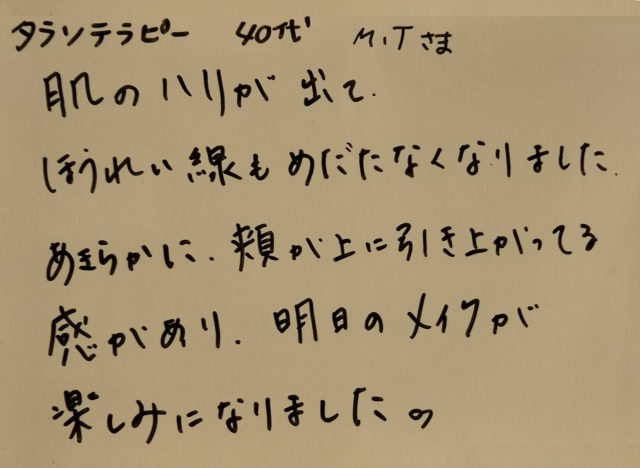 タラソテラピー 40代 M.Tさま
肌のハリが出て.
ほうれい線もめだたなくなりました.
あきらかに.頬が上に引き上がってる
感があり.明日のメイクが
楽しみになりました。